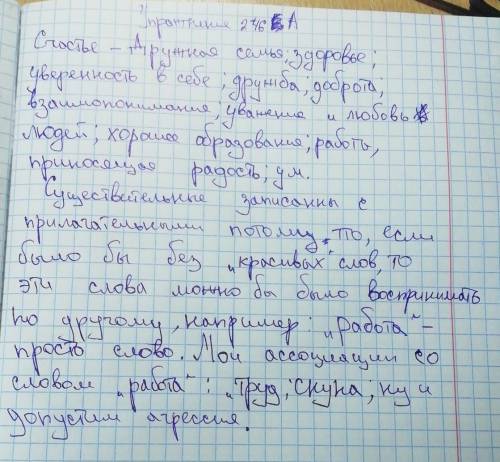 Упражнение 246 А
Счастье – Дружная семья; здоровье;
уверенность в себе; дружба; доброта;
взаимопонимание; уважение и любовь
людей; хорошее образование; работа,
приносящая радость; ум.
Существительные записанны с
прилагательными потому, что, если
было бы без „красивых" слов, то
эти слова можно бы было воспринимать
по другому, например: „Работа" –
просто слово. Мои ассоциации со
словом „работа": „труд; скука; ну и
допустим агрессия.